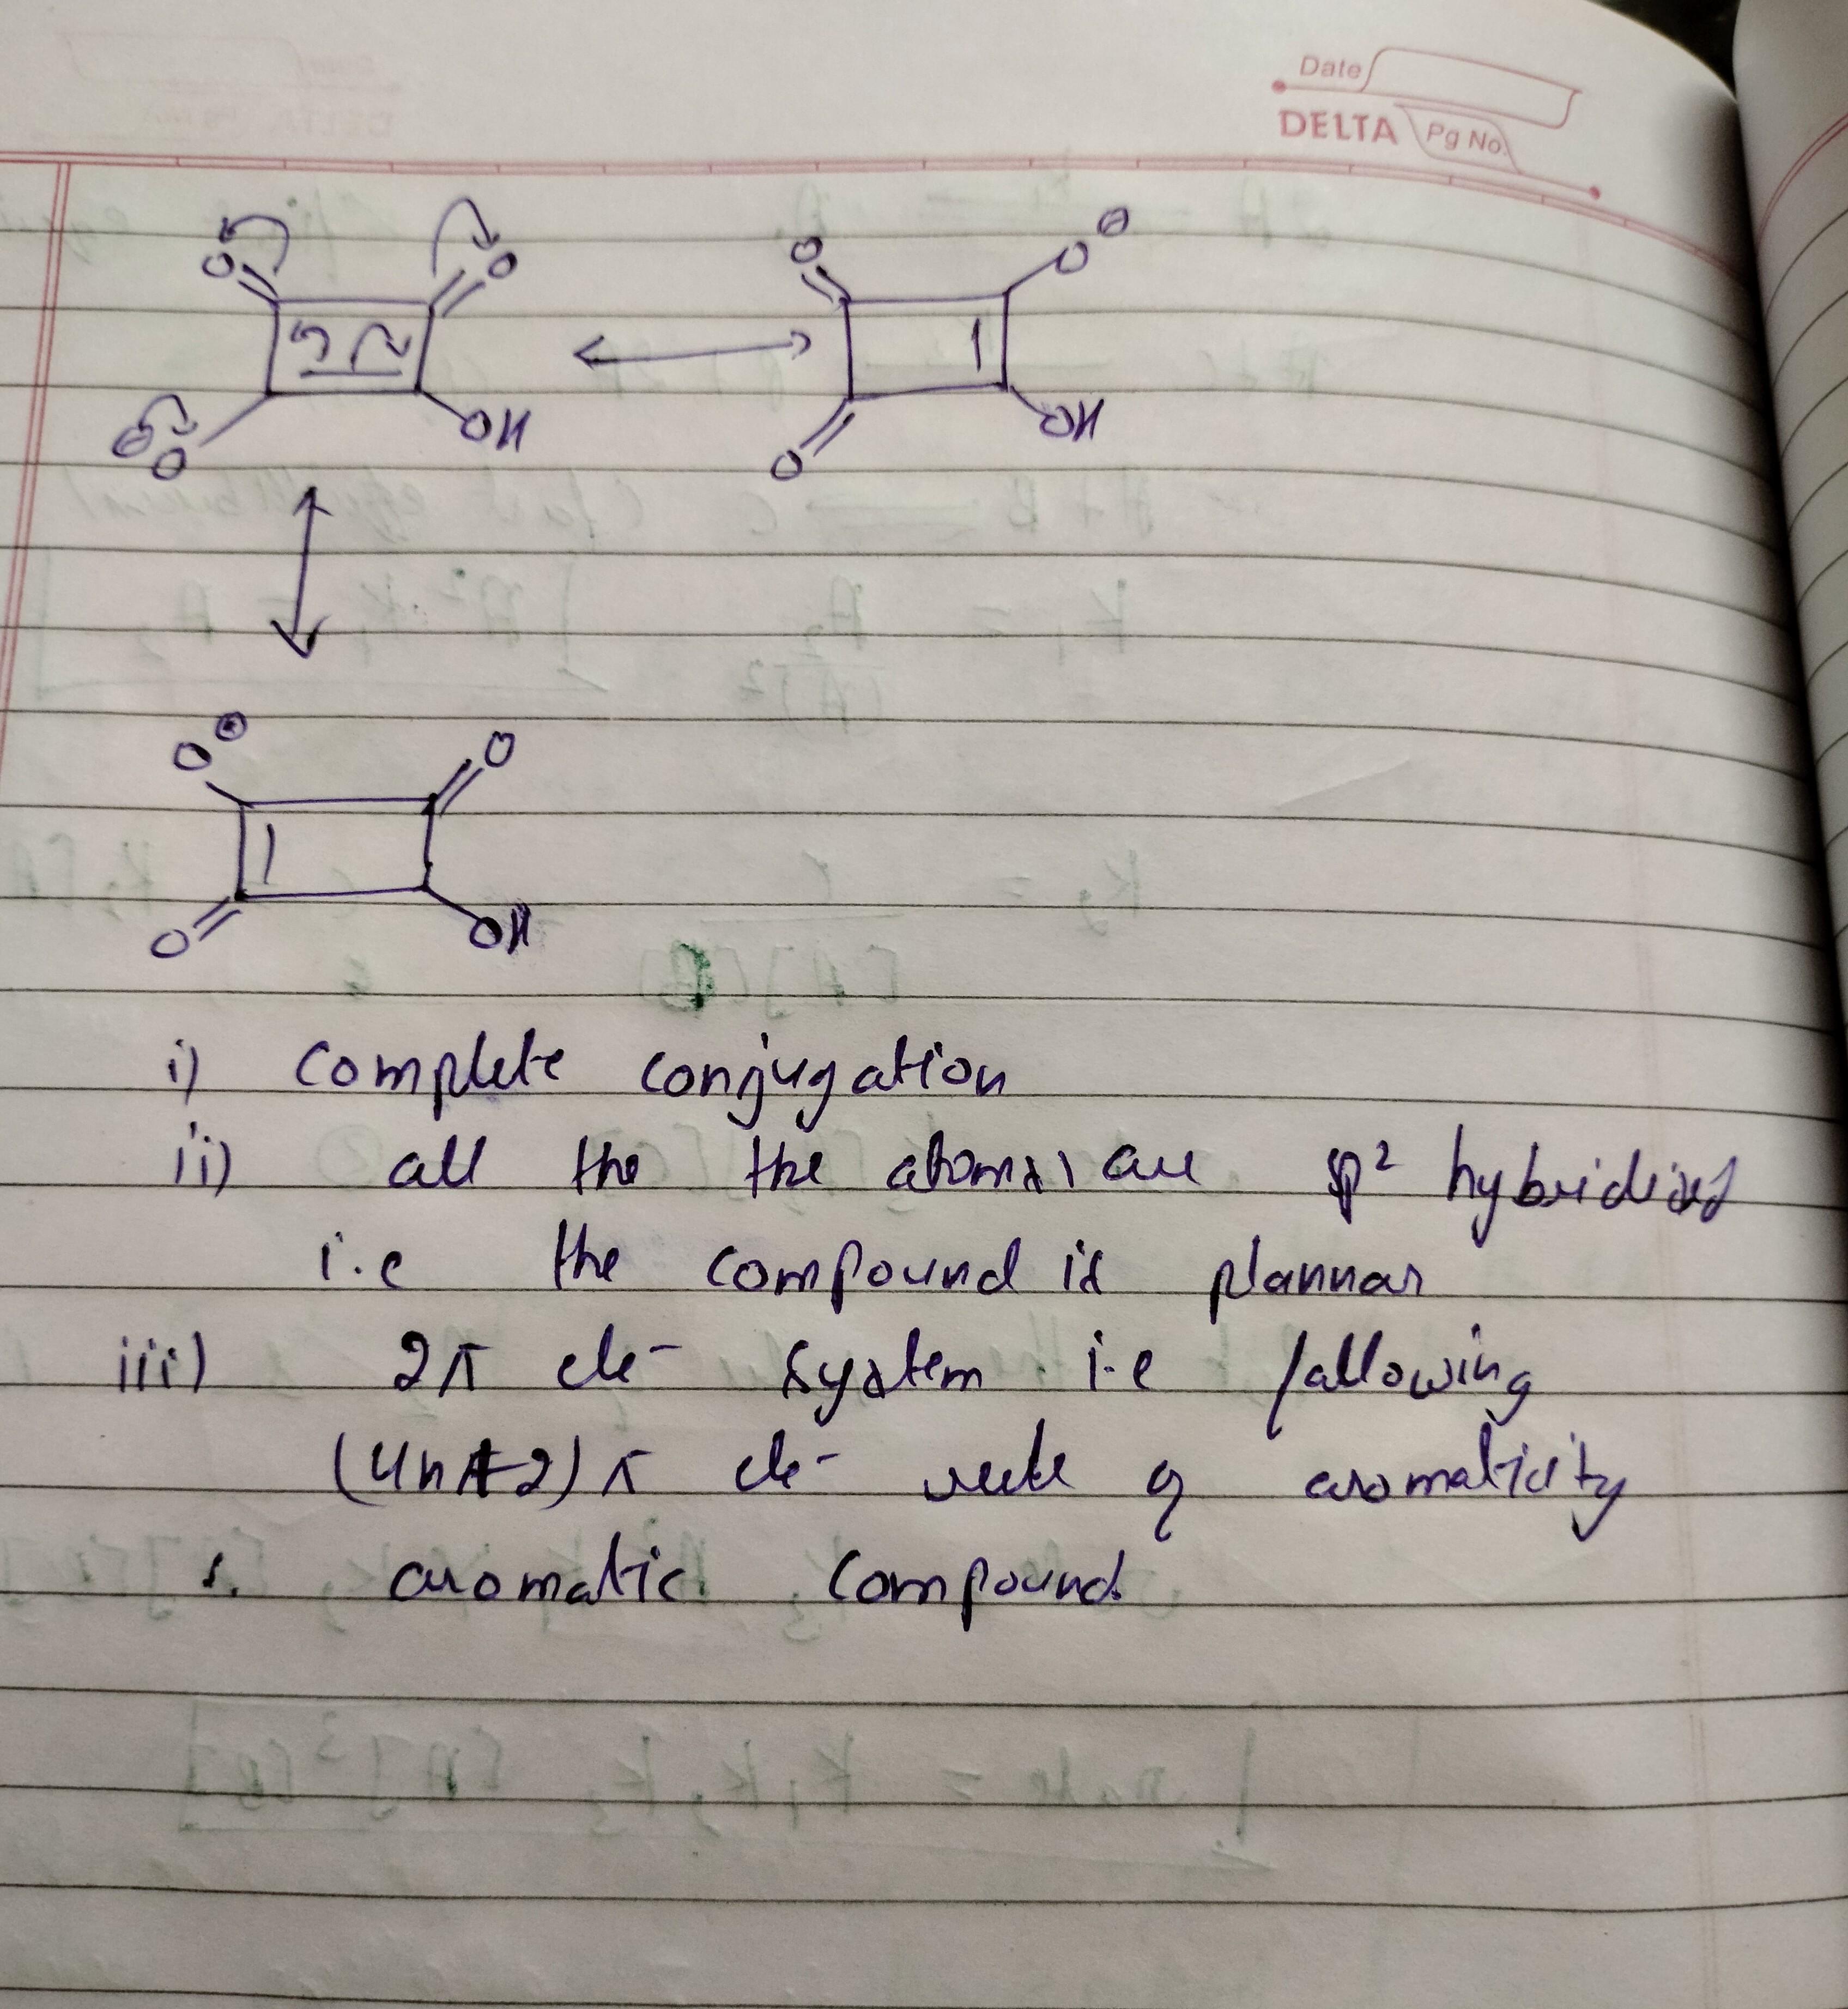 Date
DELTA Pg No.
O O O O⊖
⊖O OH O OH
O⊖ O
O OH
i) complete conjugation
ii) all the the atoms are sp² hybridised
i.e the compound is plannar
iii) 2π ele⁻ system i.e fallowing
(4n+2)π ele⁻ rule of aromaticity
∴ aromatic compound.